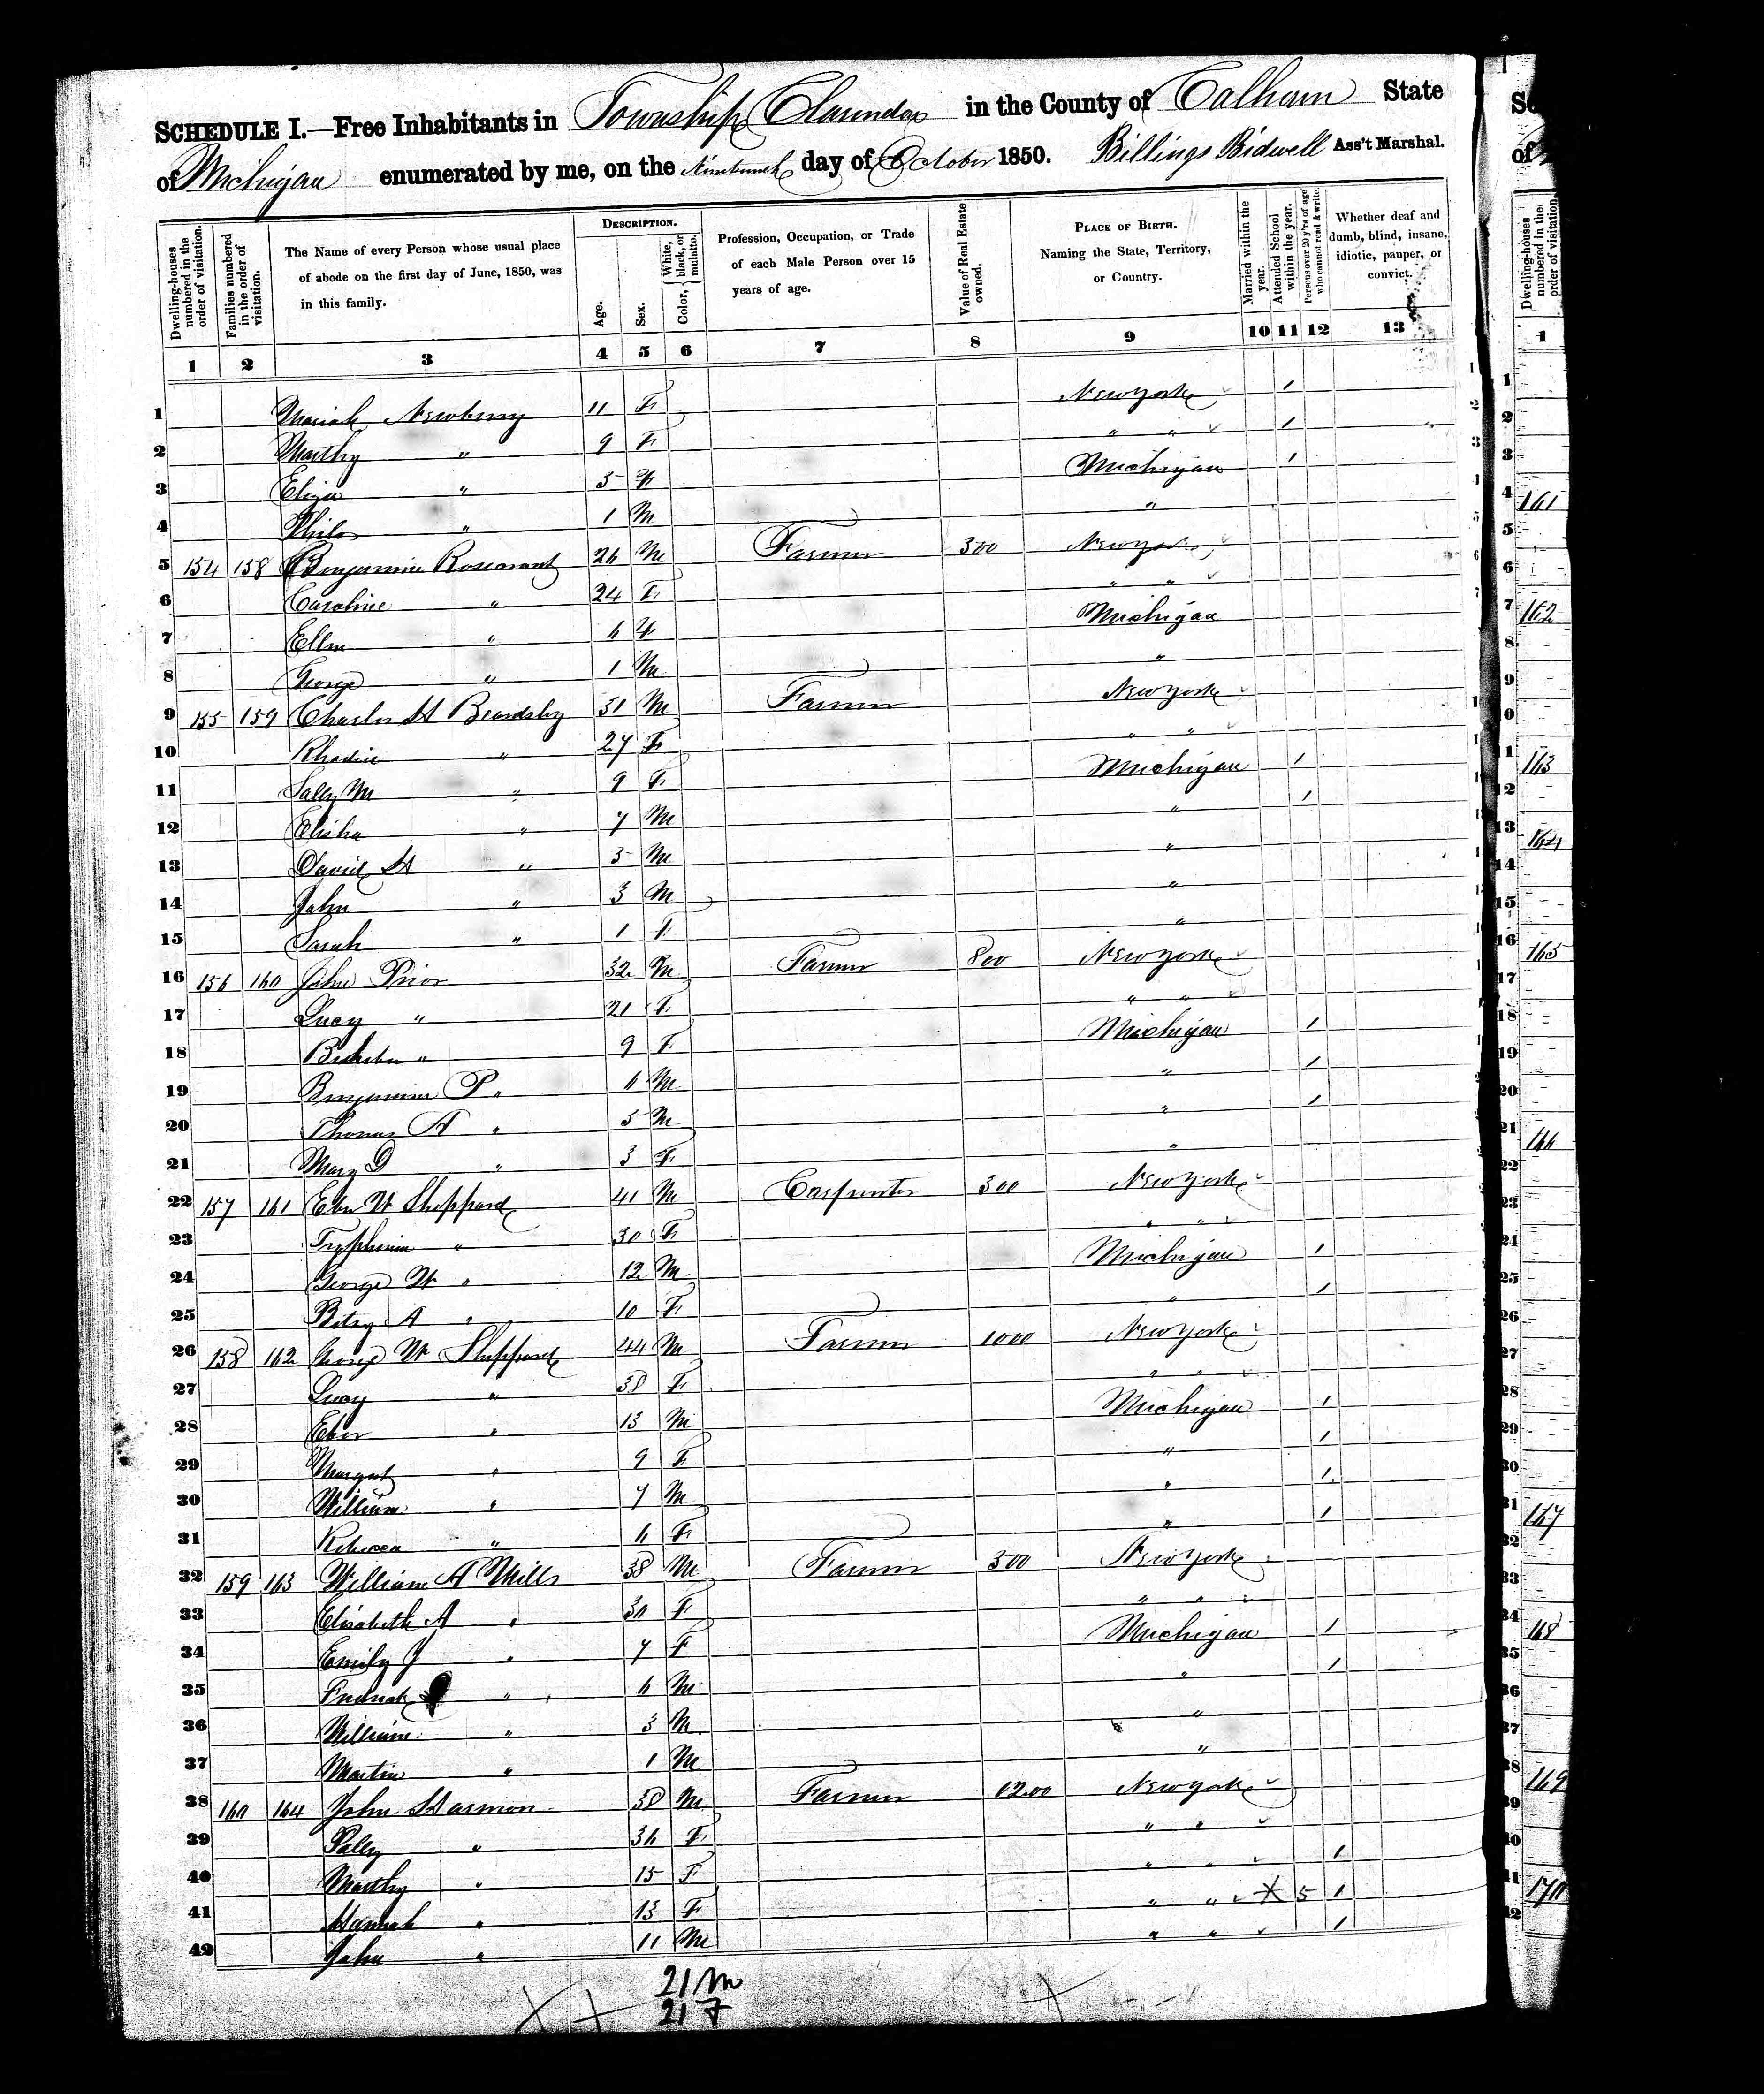 SCHEDULE I.—Free Inhabitants in Township Clarendon in the County of Calhoun State
of Michigan enumerated by me, on the Nineteenth day of October 1850. Billings Bidwell Ass't Marshal.
Dwelling-houses numbered in the order of visitation.
Families numbered in the order of visitation.
The Name of every Person whose usual place of abode on the first day of June, 1850, was in this family.
DESCRIPTION.
Age.
Sex.
Color, { White, black, or mulatto.
Profession, Occupation, or Trade of each Male Person over 15 years of age.
Value of Real Estate owned.
PLACE OF BIRTH. Naming the State, Territory, or Country.
Married within the year.
Attended School within the year.
Persons over 20 y'rs of age who cannot read & write.
Whether deaf and dumb, blind, insane, idiotic, pauper, or convict.
1 2 3 4 5 6 7 8 9 10 11 12 13
1 Mariah Newberry 11 F New York 1
2 Marthy " 9 F " " 1
3 Eliza " 5 F Michigan 1
4 Philo " 1 M "
5 154 158 Benjamin Rosecrant 26 M Farmer 300 New York
6 Caroline " 24 F " "
7 Ellen " 6 F Michigan
8 George " 1 M "
9 155 159 Charles H Beardsley 31 M Farmer New York
10 " 27 F " "
11 Sally M " 9 F Michigan 1
12 Elisha " 7 M " 1
13 David H " 5 M "
14 John " 3 M "
15 Sarah " 1 F "
16 156 160 John Prior 32 M Farmer 800 New York
17 Lucy " 21 F " "
18 " 9 F Michigan 1
19 Benjamin P " 6 M " 1
20 Thomas A " 5 M " 1
21 Mary D " 3 F "
22 157 161 Eben W Sheppard 41 M Carpenter 300 New York
23 " 30 F " "
24 George W " 12 M Michigan 1
25 Betsy A " 10 F " 1
26 158 162 George W Sheppard 44 M Farmer 1000 New York
27 Lucy " 38 F " "
28 " 13 M Michigan 1
29 Margaret " 9 F " 1
30 William " 7 M " 1
31 Rebecca " 6 F " 1
32 159 163 William A Mills 38 M Farmer 300 New York
33 Elisabeth A " 30 F " "
34 Emily J " 7 F Michigan 1
35 " 6 M " 1
36 William " 3 M "
37 Martin " 1 M "
38 160 164 John Harmon 38 M Farmer 1200 New York
39 Sally " 36 F " "
40 Marthy " 15 F " " 1
41 Hannah " 13 F " " X 5 1
42 John " 11 M " " 1
21 M
21 F
161
162
163
164
165
166
167
168
169
170